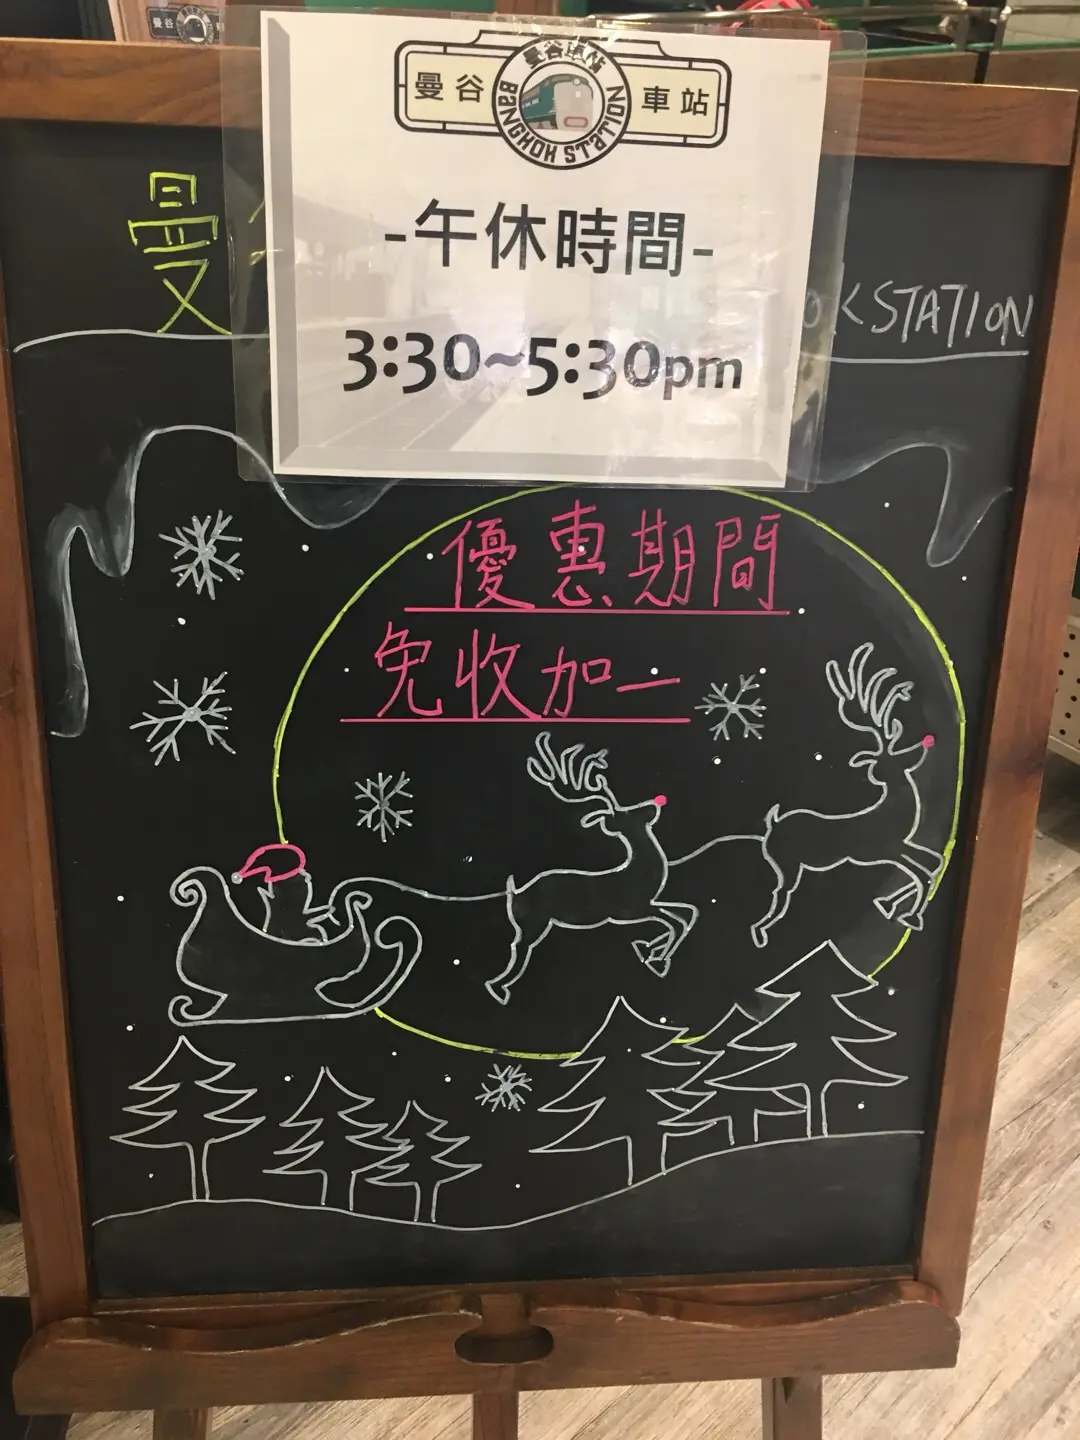 曼谷 車站
曼谷車站
BANGKOK STATION
-午休時間-
3:30~5:30pm
曼
OK STATION
優惠期間
免收加一